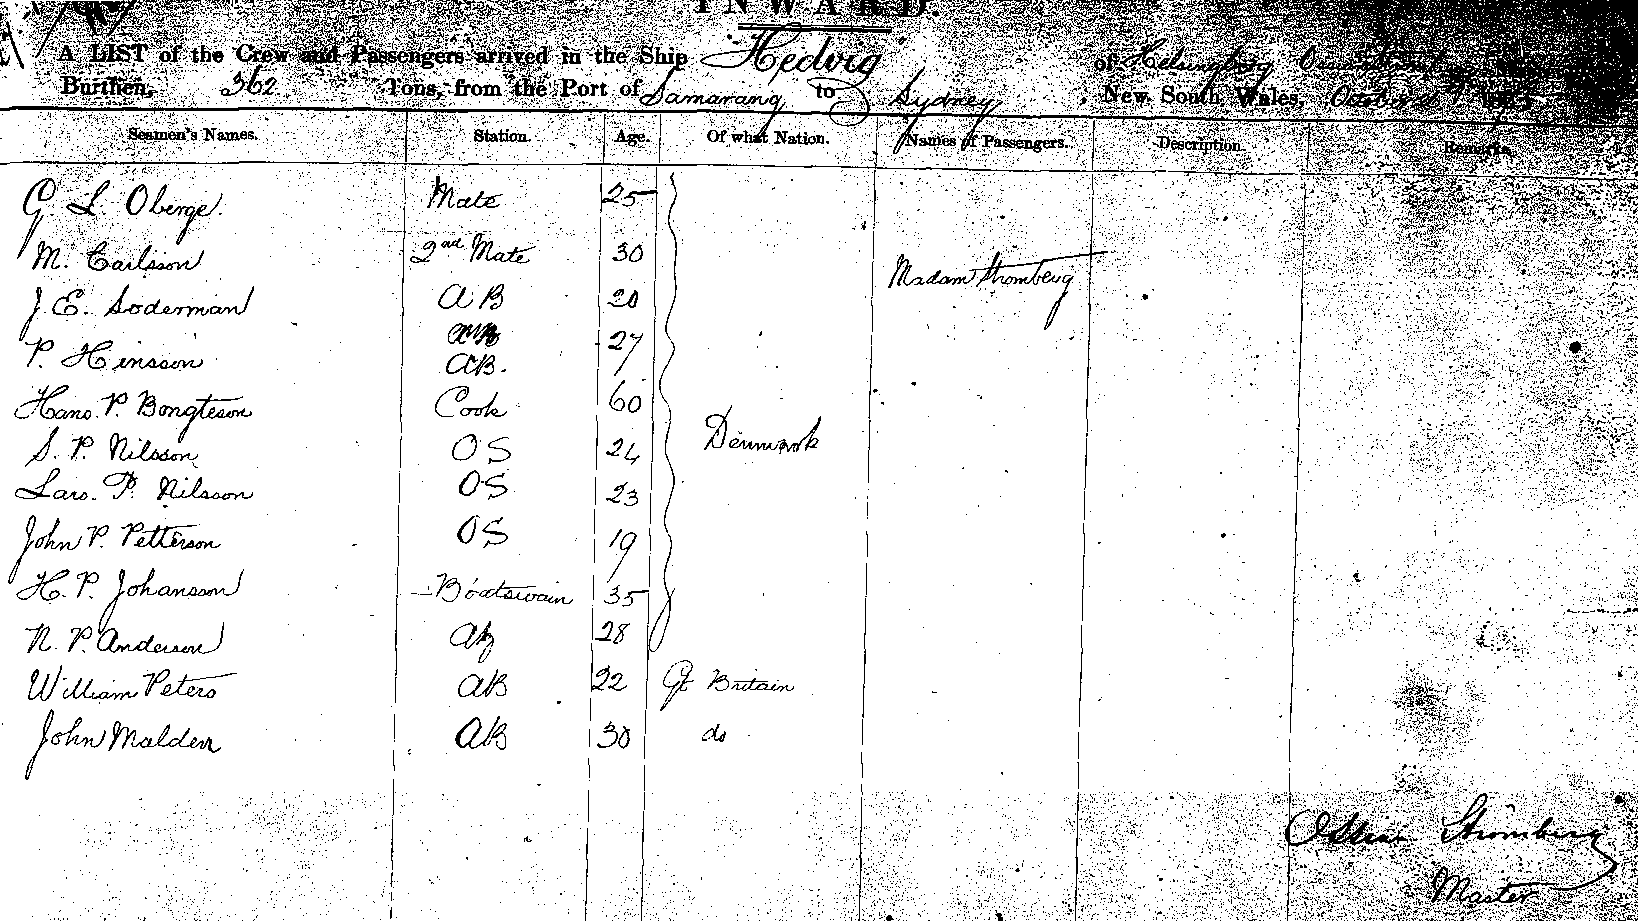 INWARD.
A LIST of the Crew and Passengers arrived in the Ship Hedvig of Helsingborg
Burthen, 362 Tons, from the Port of Samarang to Sydney, New South Wales, October
Seamen's Names. Station. Age. Of what Nation. Names of Passengers. Description. Remarks.
G L Oberge. Mate 25
M. Carlsson 2nd Mate 30
Madam Stromberg
J. E. Soderman AB 20
P. Hinsson AB. 27
Hans. P. Bongteson Cook 60
Denmark
S. P. Nilsson OS 24
Lars. P. Nilsson OS 23
John P. Petterson OS 19
H. P. Johansson Boatswain 35
N. P. Anderson AB 28
William Peters AB 22 Gt Britain
John Malden AB 30 do
Stromberg
Master